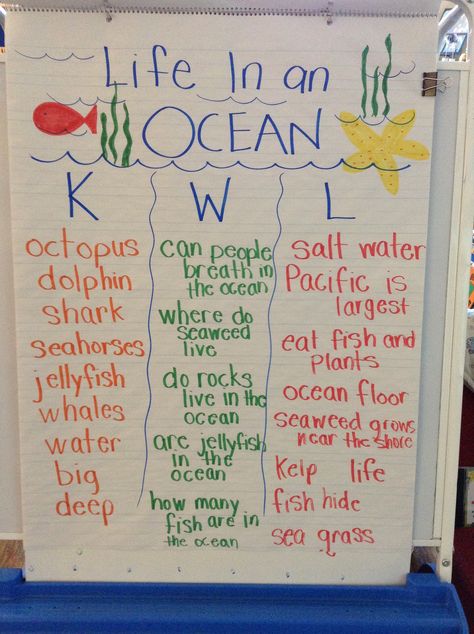 Life In an
OCEAN
K
octopus
dolphin
shark
seahorses
jellyfish
whales
water
big
deep
W
can people
breath in
the ocean
where do
seaweed
live
do rocks
live in the
ocean
are jellyfish
in the
ocean
how many
fish are in
the ocean
L
salt water
Pacific is
largest
eat fish and
plants
ocean floor
seaweed grows
near the shore
Kelp life
fish hide
sea grass